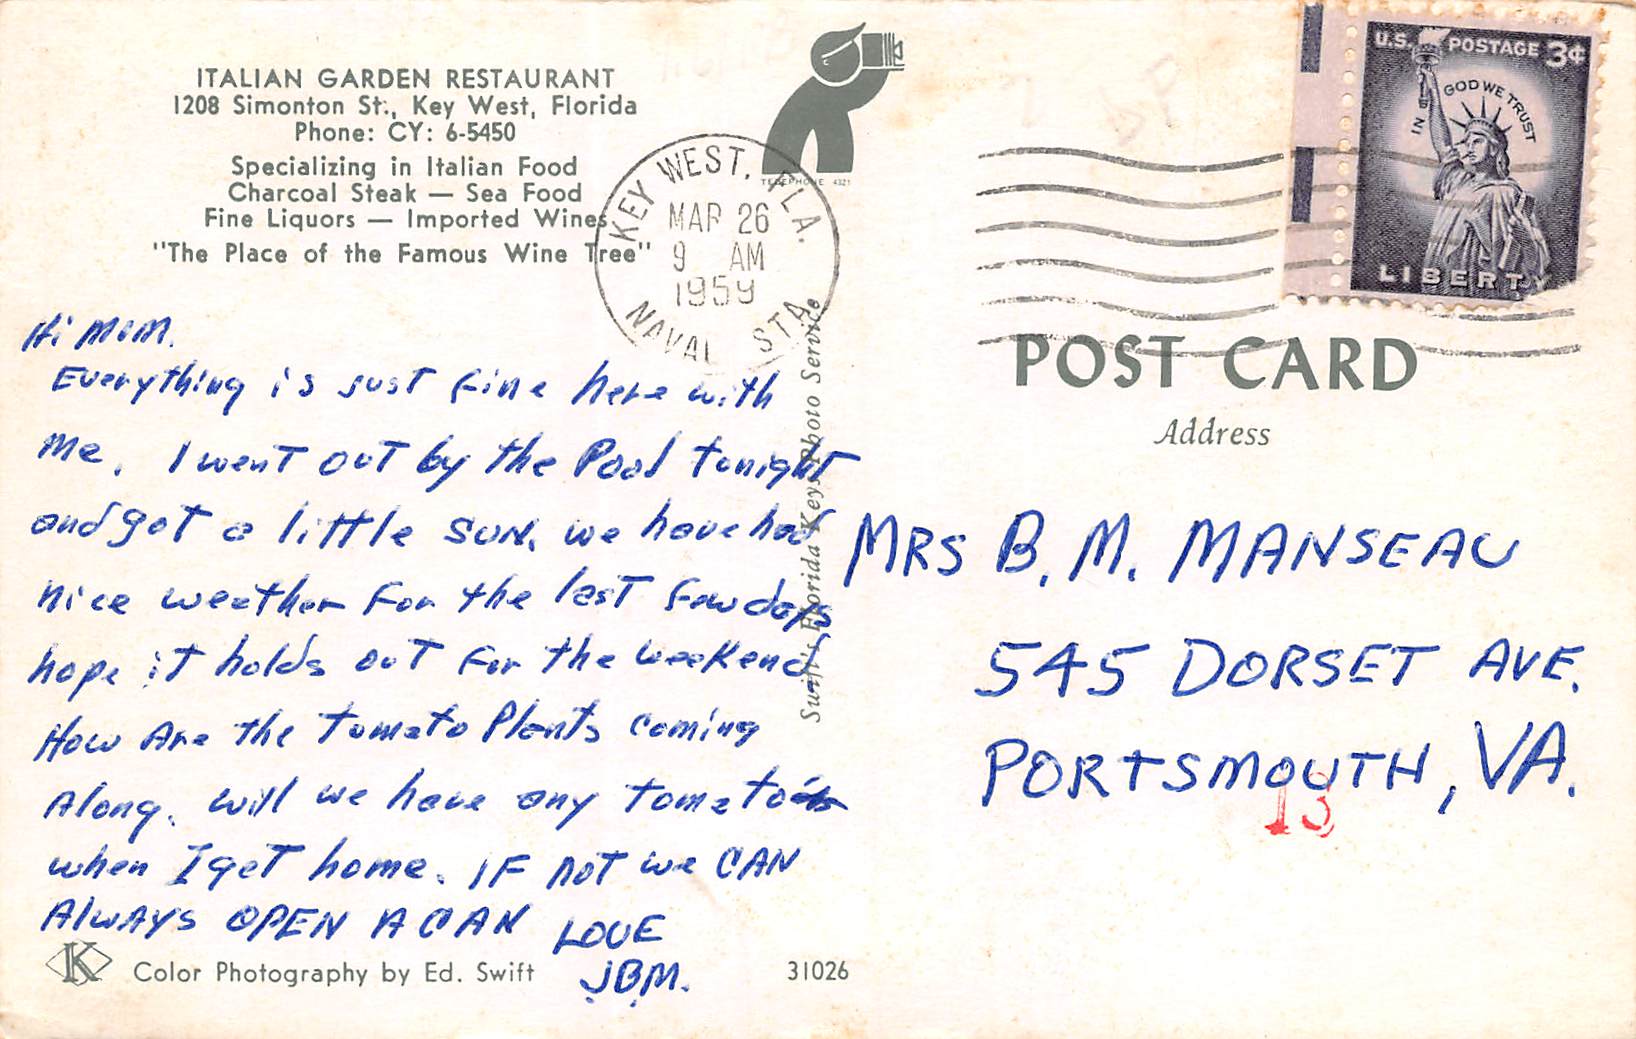 ITALIAN GARDEN RESTAURANT
1208 Simonton St., Key West, Florida
Phone: CY: 6-5450
Specializing in Italian Food
Charcoal Steak — Sea Food
Fine Liquors — Imported Wines
"The Place of the Famous Wine Tree"
TELEPHONE 4321
KEY WEST, FLA.
MAR 26
9 AM
1959
NAVAL STA.
U.S. POSTAGE 3¢
IN GOD WE TRUST
LIBERTY
Hi Mom.
Everything is just fine here with
me. I went out by the Pool tonight
and got a little sun. we have had
nice weather for the last few days
hope it holds out for the weekend
How Are the tomato Plants coming
Along. will we have any tomatoes
when I get home. IF not we CAN
AlwAYS OPEN A CAN LOVE
JBM.
Swift's Florida Keys Photo Service
POST CARD
Address
MRS B. M. MANSEAU
545 DORSET AVE.
PORTSMOUTH, VA.
13
K Color Photography by Ed. Swift
31026